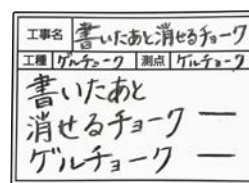 工事名 書いたあと消せるチョーク
工種 ゲルチョーク 測点 ゲルチョーク
書いたあと
消せるチョーク ー
ゲルチョーク ー